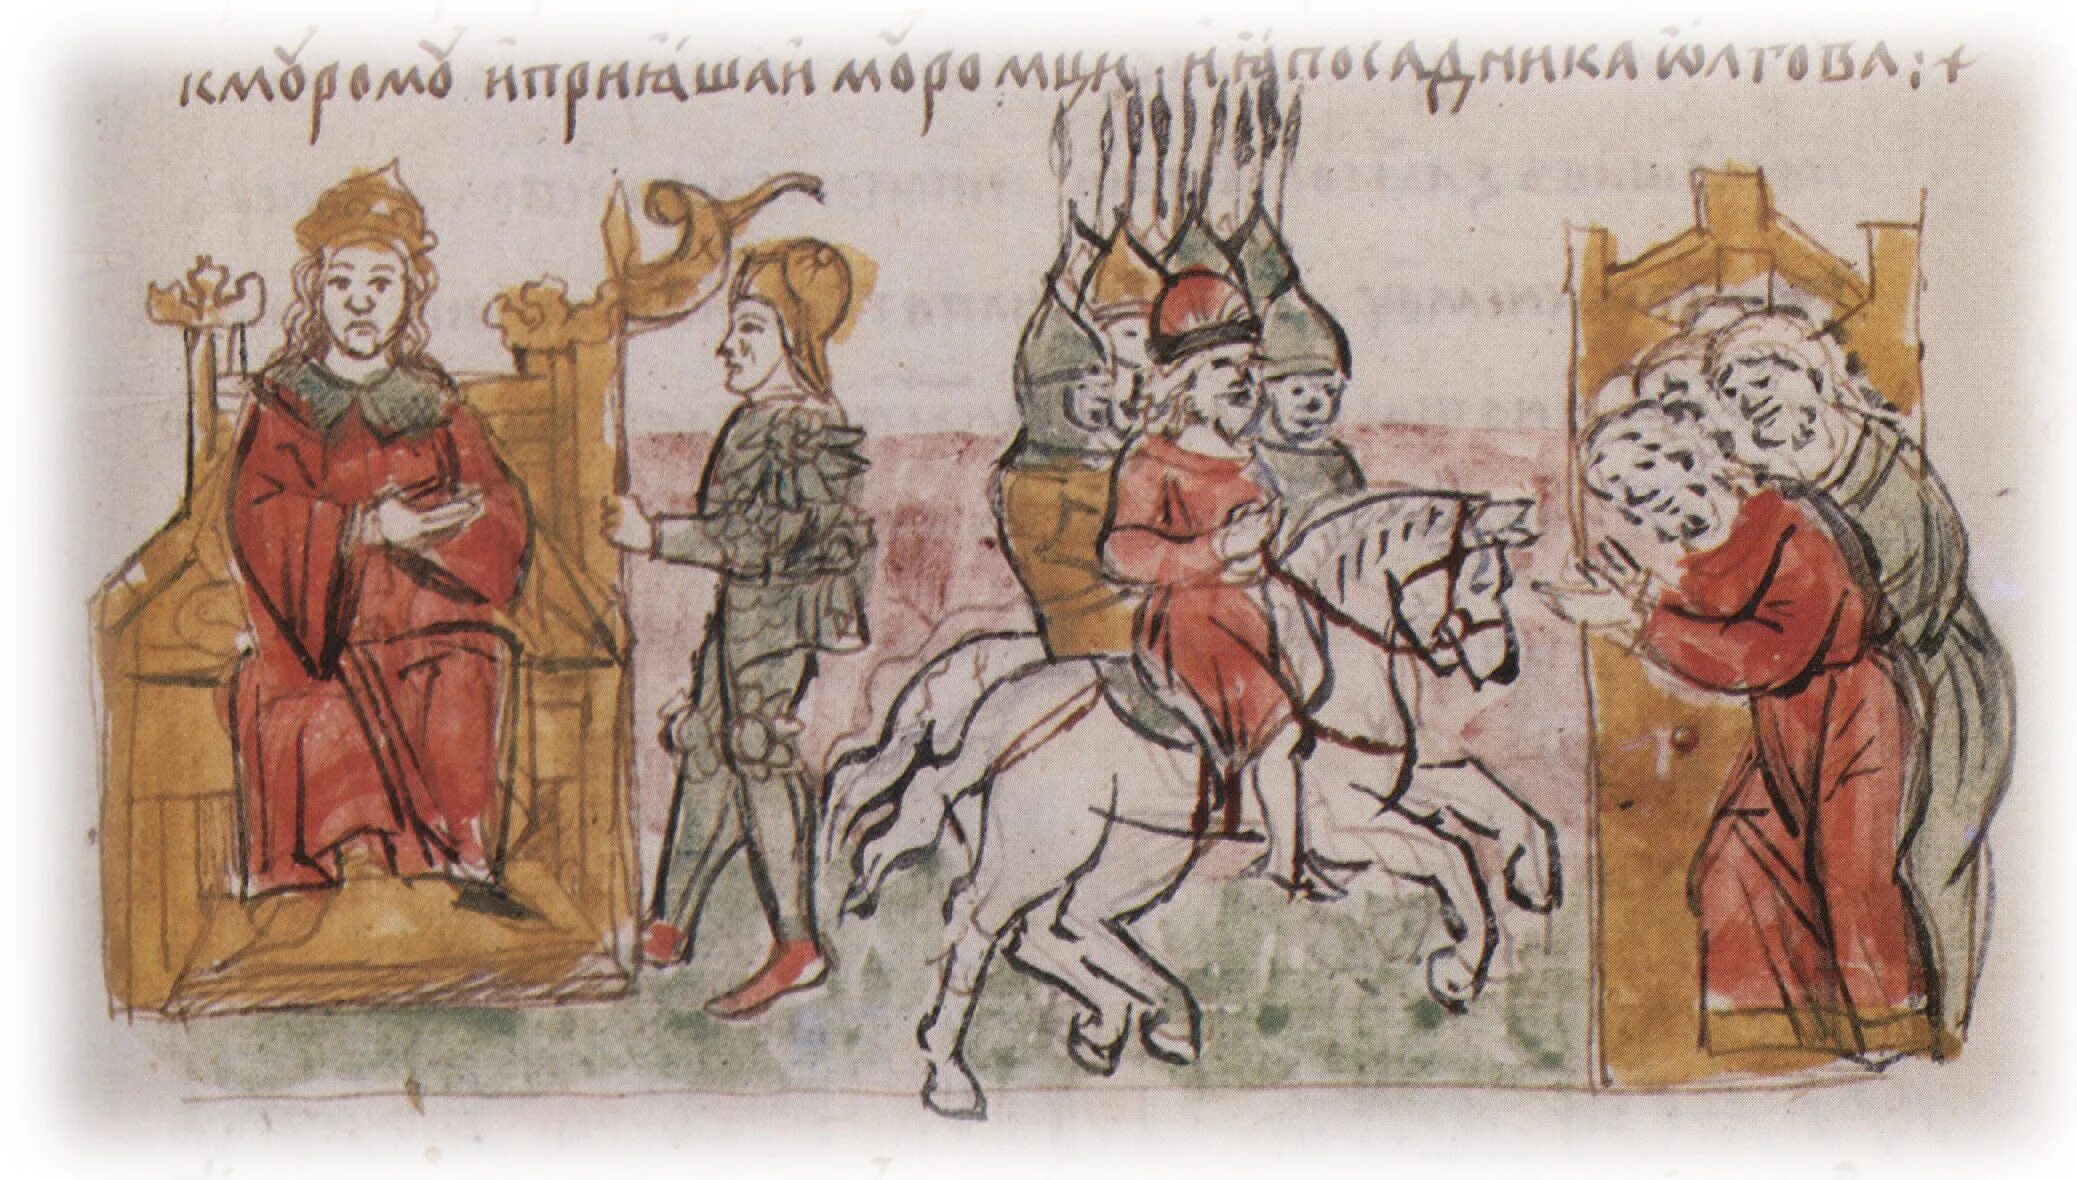 к мꙋромꙋ и приꙗша и мꙋромци · и ꙗ посадника ѡлгова :+